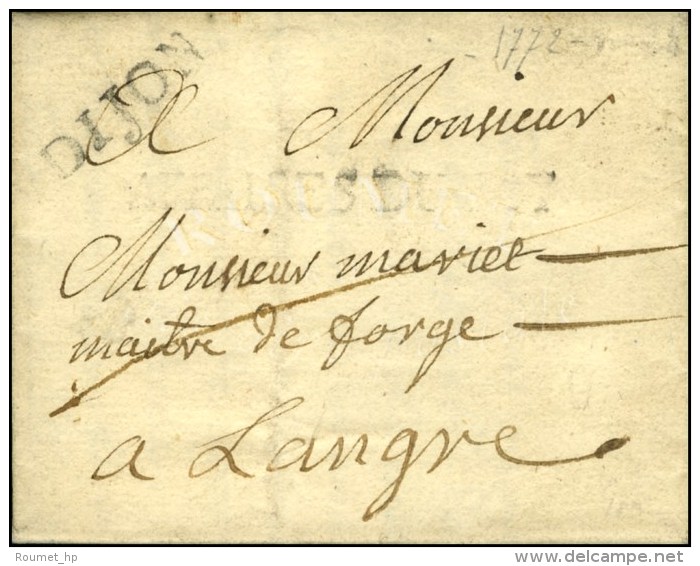 1772
DIJON
A Monsieur
AFFAIRES DU ROY
Monsieur mariet
maitre de forge
a Langre
Roumet_hp
www.delcampe.net